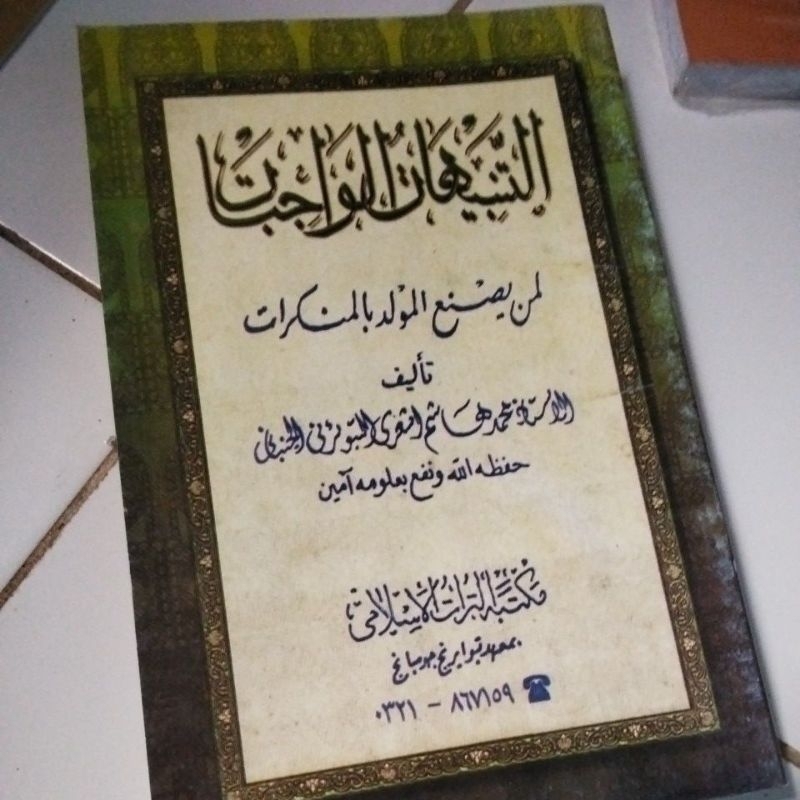 التنبيهات الواجبات
لمن يصنع المولد بالمنكرات
تأليف
الأستاذ محمد هاشم اشعري التبوئرنى الجنباني
حفظه الله ونفع بعلومه آمين
مكتبة التراث الإسلامي
بمعهد تبوايرنج جومبانج
٠٣٢١ – ٨٦٧١٥٩